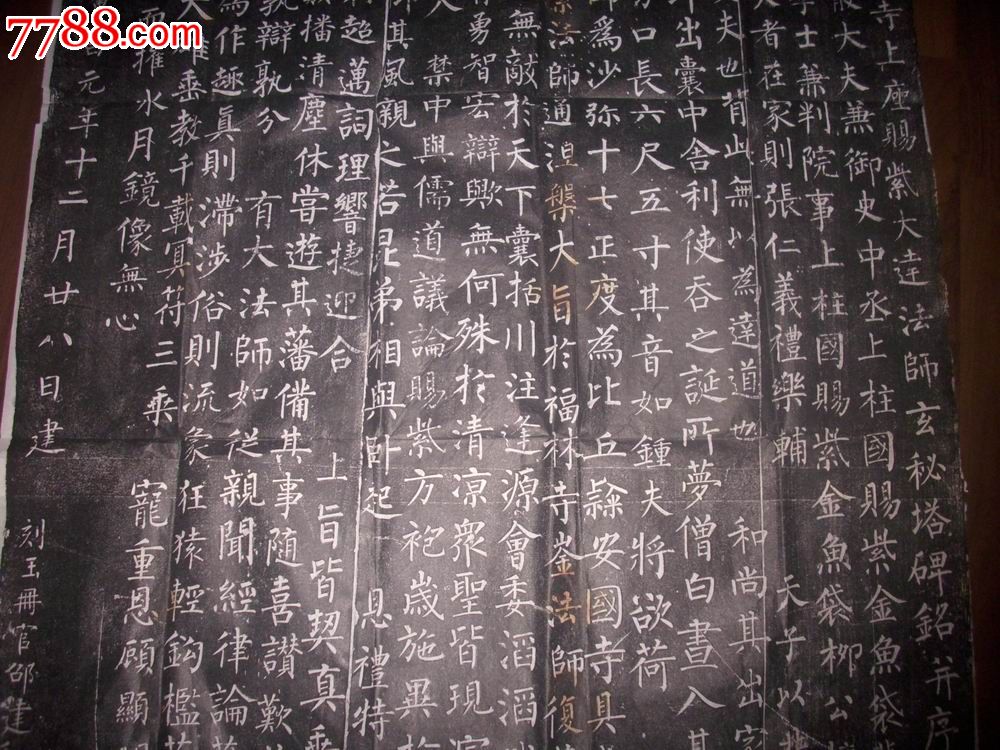 7788.com
寺上座賜紫大達法師玄秘塔碑銘并序
大夫兼御史中丞上柱國賜紫金魚袋
學士兼判院事上柱國賜紫金魚袋柳公
夫者在家則張仁義禮樂輔 天子以
夫也背此無以為達道也 和尚其出家
出囊中舍利使吞之誕所夢僧白晝入其
方口長六尺五寸其音如鍾夫將欲荷
師為沙弥十七正度為比丘隸安國寺具
法師通涅槃大旨於福林寺崟法師復
無敵於天下囊括川注逢源會委滔滔
有勇智宏辯歟無何殊於清涼眾聖皆現
禁中與儒道議論賜紫方袍歲施異於
其風親之若昆弟相與臥起 恩禮特
超邁詞理響捷迎合 上旨皆契真乘
播清塵休嘗遊其藩備其事隨喜讚歎
辯孰分 有大法師如從親聞經律論
作趣真則滯涉俗則流象狂猿輕鈎檻
大雄垂教千載冥符三乘 寵重恩顧顯
水月鏡像無心
元年十二月廿八日建 刻玉冊官邵建